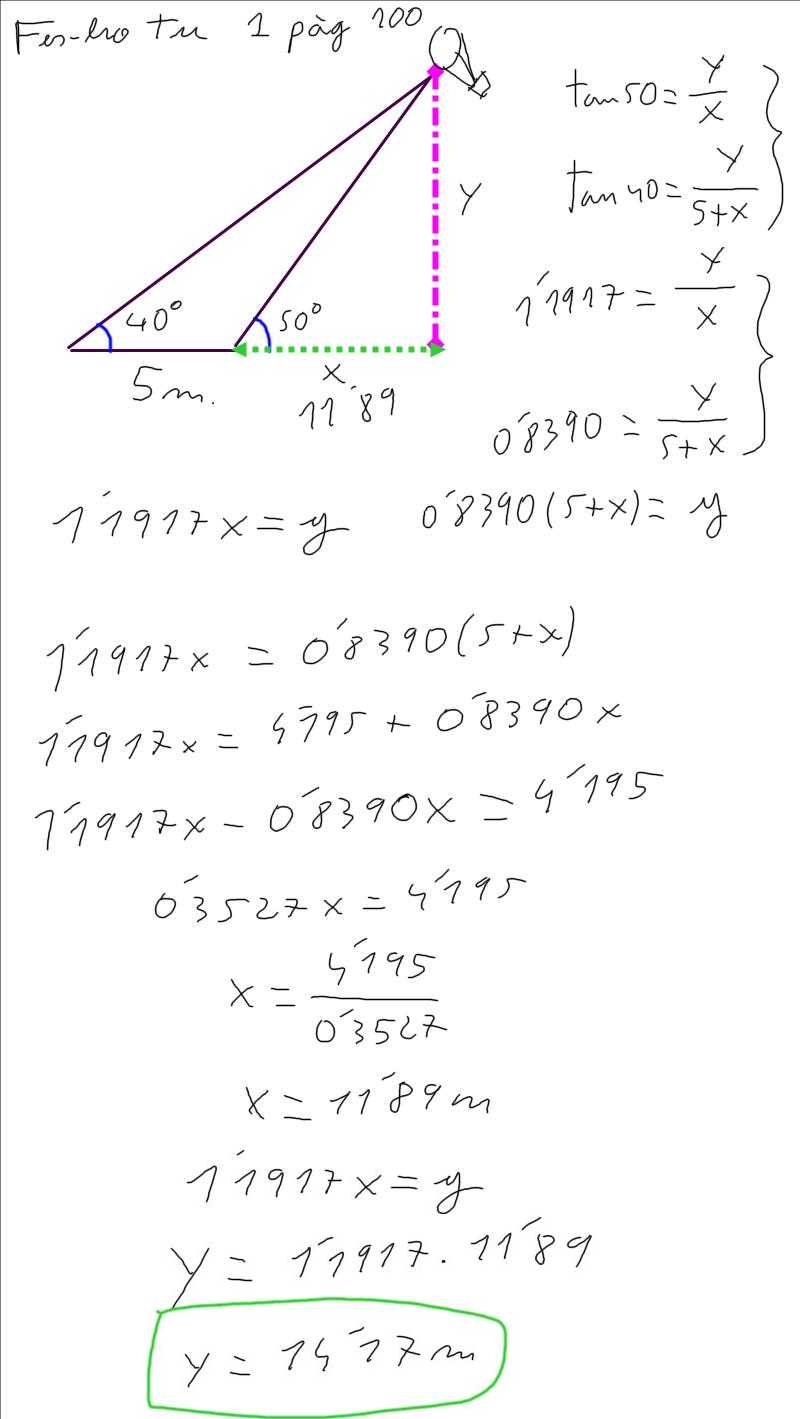 Fes-ho tu 1 pàg 200
tan 50 = y/x
tan 40 = y/(5+x)
y
40°
50°
5 m.
x
11´89
1´1917 = y/x
0´8390 = y/(5+x)
1´1917 x = y
0´8390 (5+x) = y
1´1917 x = 0´8390 (5+x)
1´1917 x = 4´195 + 0´8390 x
1´1917 x - 0´8390 x = 4´195
0´3527 x = 4´195
x = 4´195/0´3527
x = 11´89 m
1´1917 x = y
y = 1´1917 · 11´89
y = 14´17 m